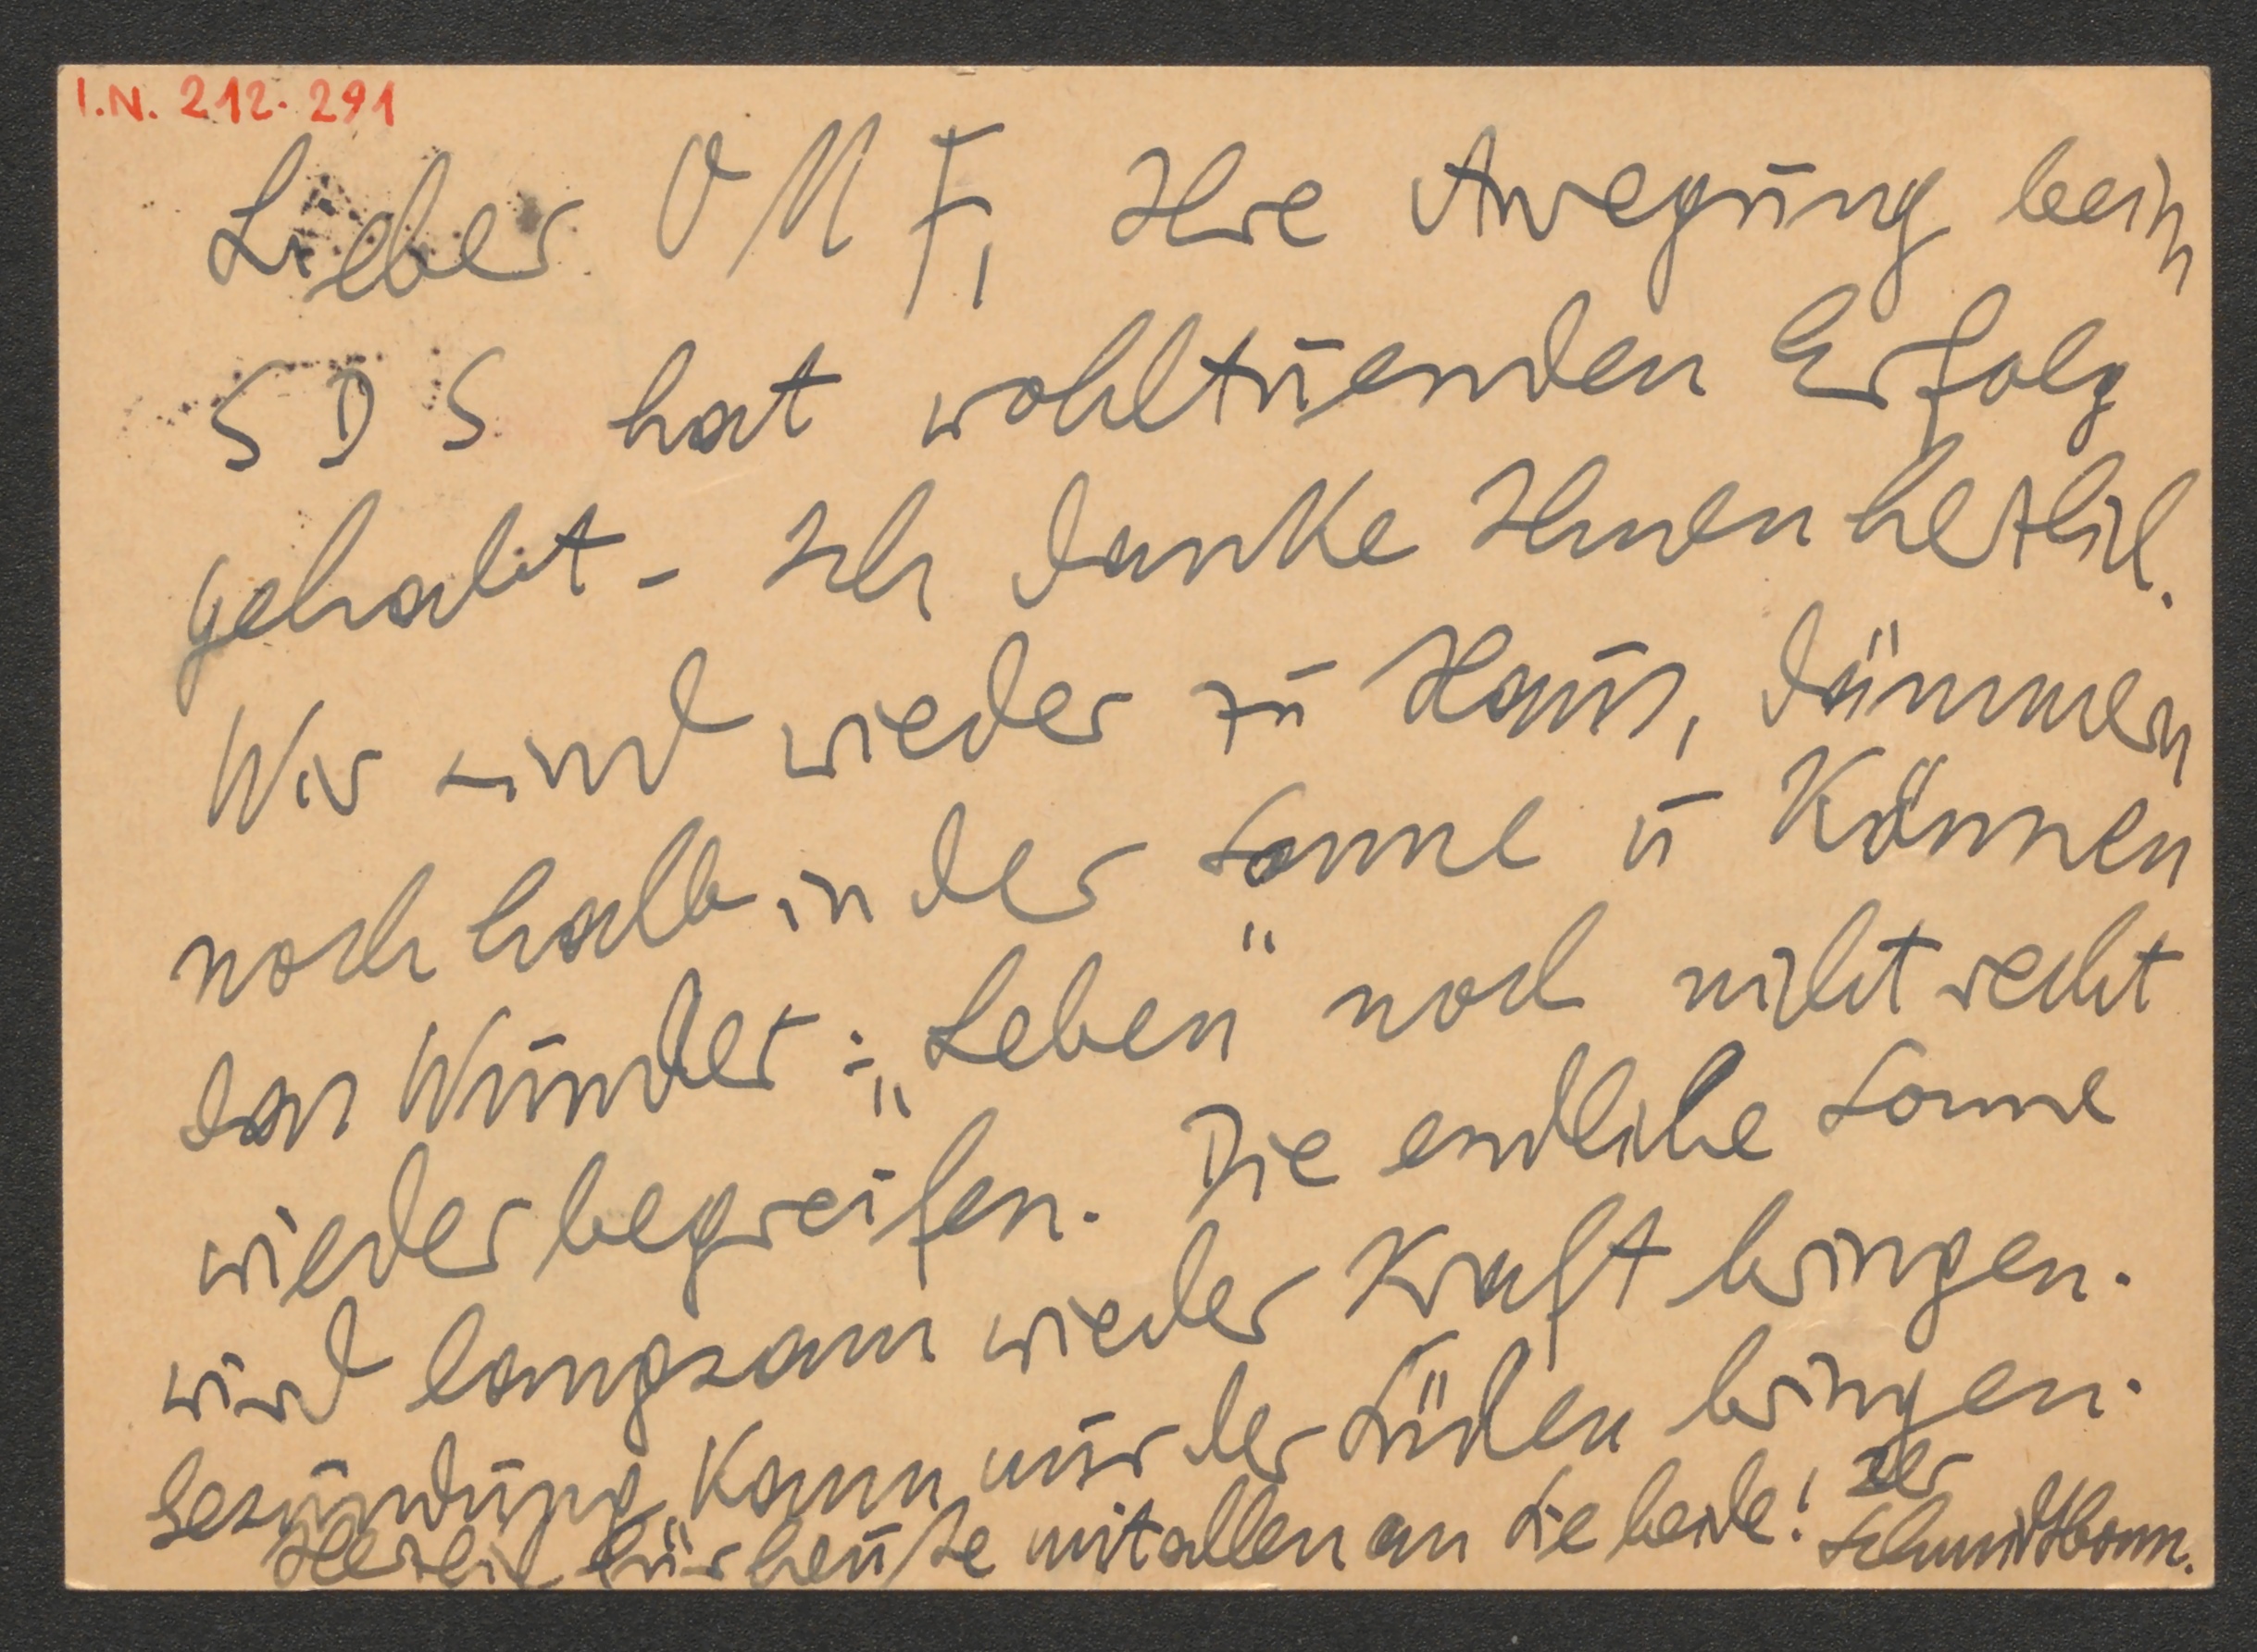 I.N. 212.291
Lieber OMF, Ihre Anregung beim
SDS hat wohltuenden Erfolg
gehabt - Ich danke Ihnen herzlich.
Wir sind wieder zu Haus, dämmern
noch halb in der Sonne u können
das Wunder: „Leben" noch nicht recht
wieder begreifen. Die endliche Sonne
wird langsam wieder Kraft bringen.
Gesundung kann nur der Süden bringen.
Herzlich für heute mit allen an Sie beide! Der
Schmidtbonn.